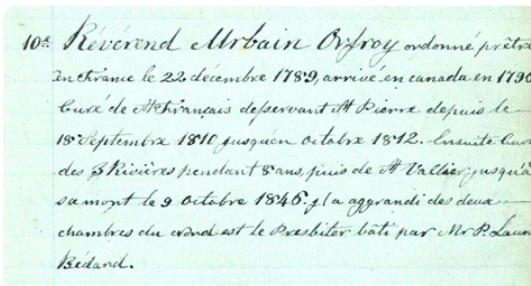 10e Révérend Urbain Orfroy ordonné prêtre
en France le 22 décembre 1789, arrivé en canada en 179
Curé de St François desservant St Pierre depuis le
18 Septembre 1810 jusqu'en octobre 1812. Ensuite Curé
des 3 Rivières pendant 8 ans, puis de St Vallier jusqu'à
sa mort le 9 octobre 1846. il a aggrandi des deux
chambres du nord est le Presbiter bâti par Mr P. Laur
Bédard.